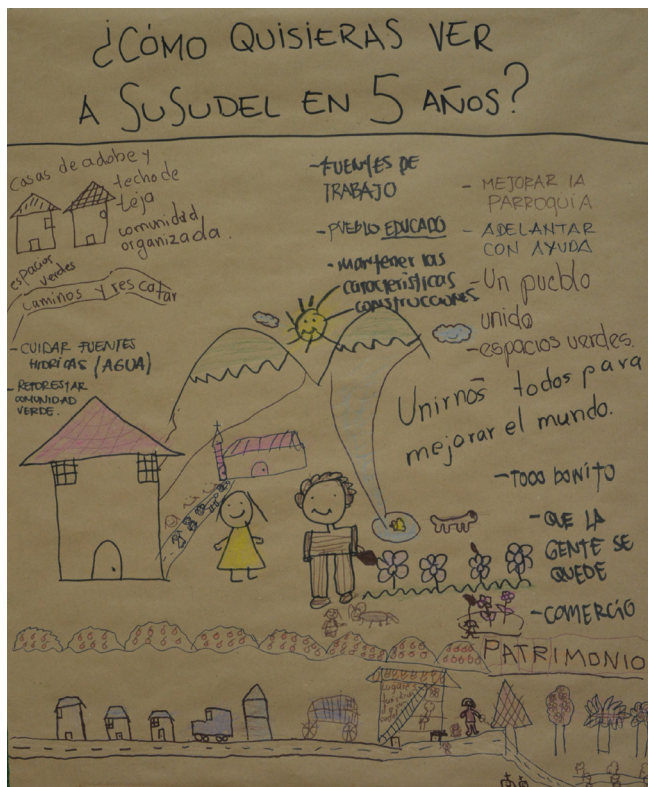 ¿CÓMO QUISIERAS VER
A SUSUDEL EN 5 AÑOS?
casas de adobe y
techo de
teja
comunidad
organizada.
espacios
verdes
caminos y rescatar
- CUIDAR FUENTES
HIDRICAS (AGUA)
- REFORESTAR
COMUNIDAD
VERDE.
- FUENTES DE
TRABAJO
- PUEBLO EDUCADO
- mantener las
caracteristicas
construcciones
- MEJORAR LA
PARROQUIA
- ADELANTAR
CON AYUDA
- Un pueblo
unido
- espacios verdes.
Unirnos todos para
mejorar el mundo.
- TODO BONITO
- QUE LA
GENTE SE
QUEDE
- COMERCIO
PATRIMONIO